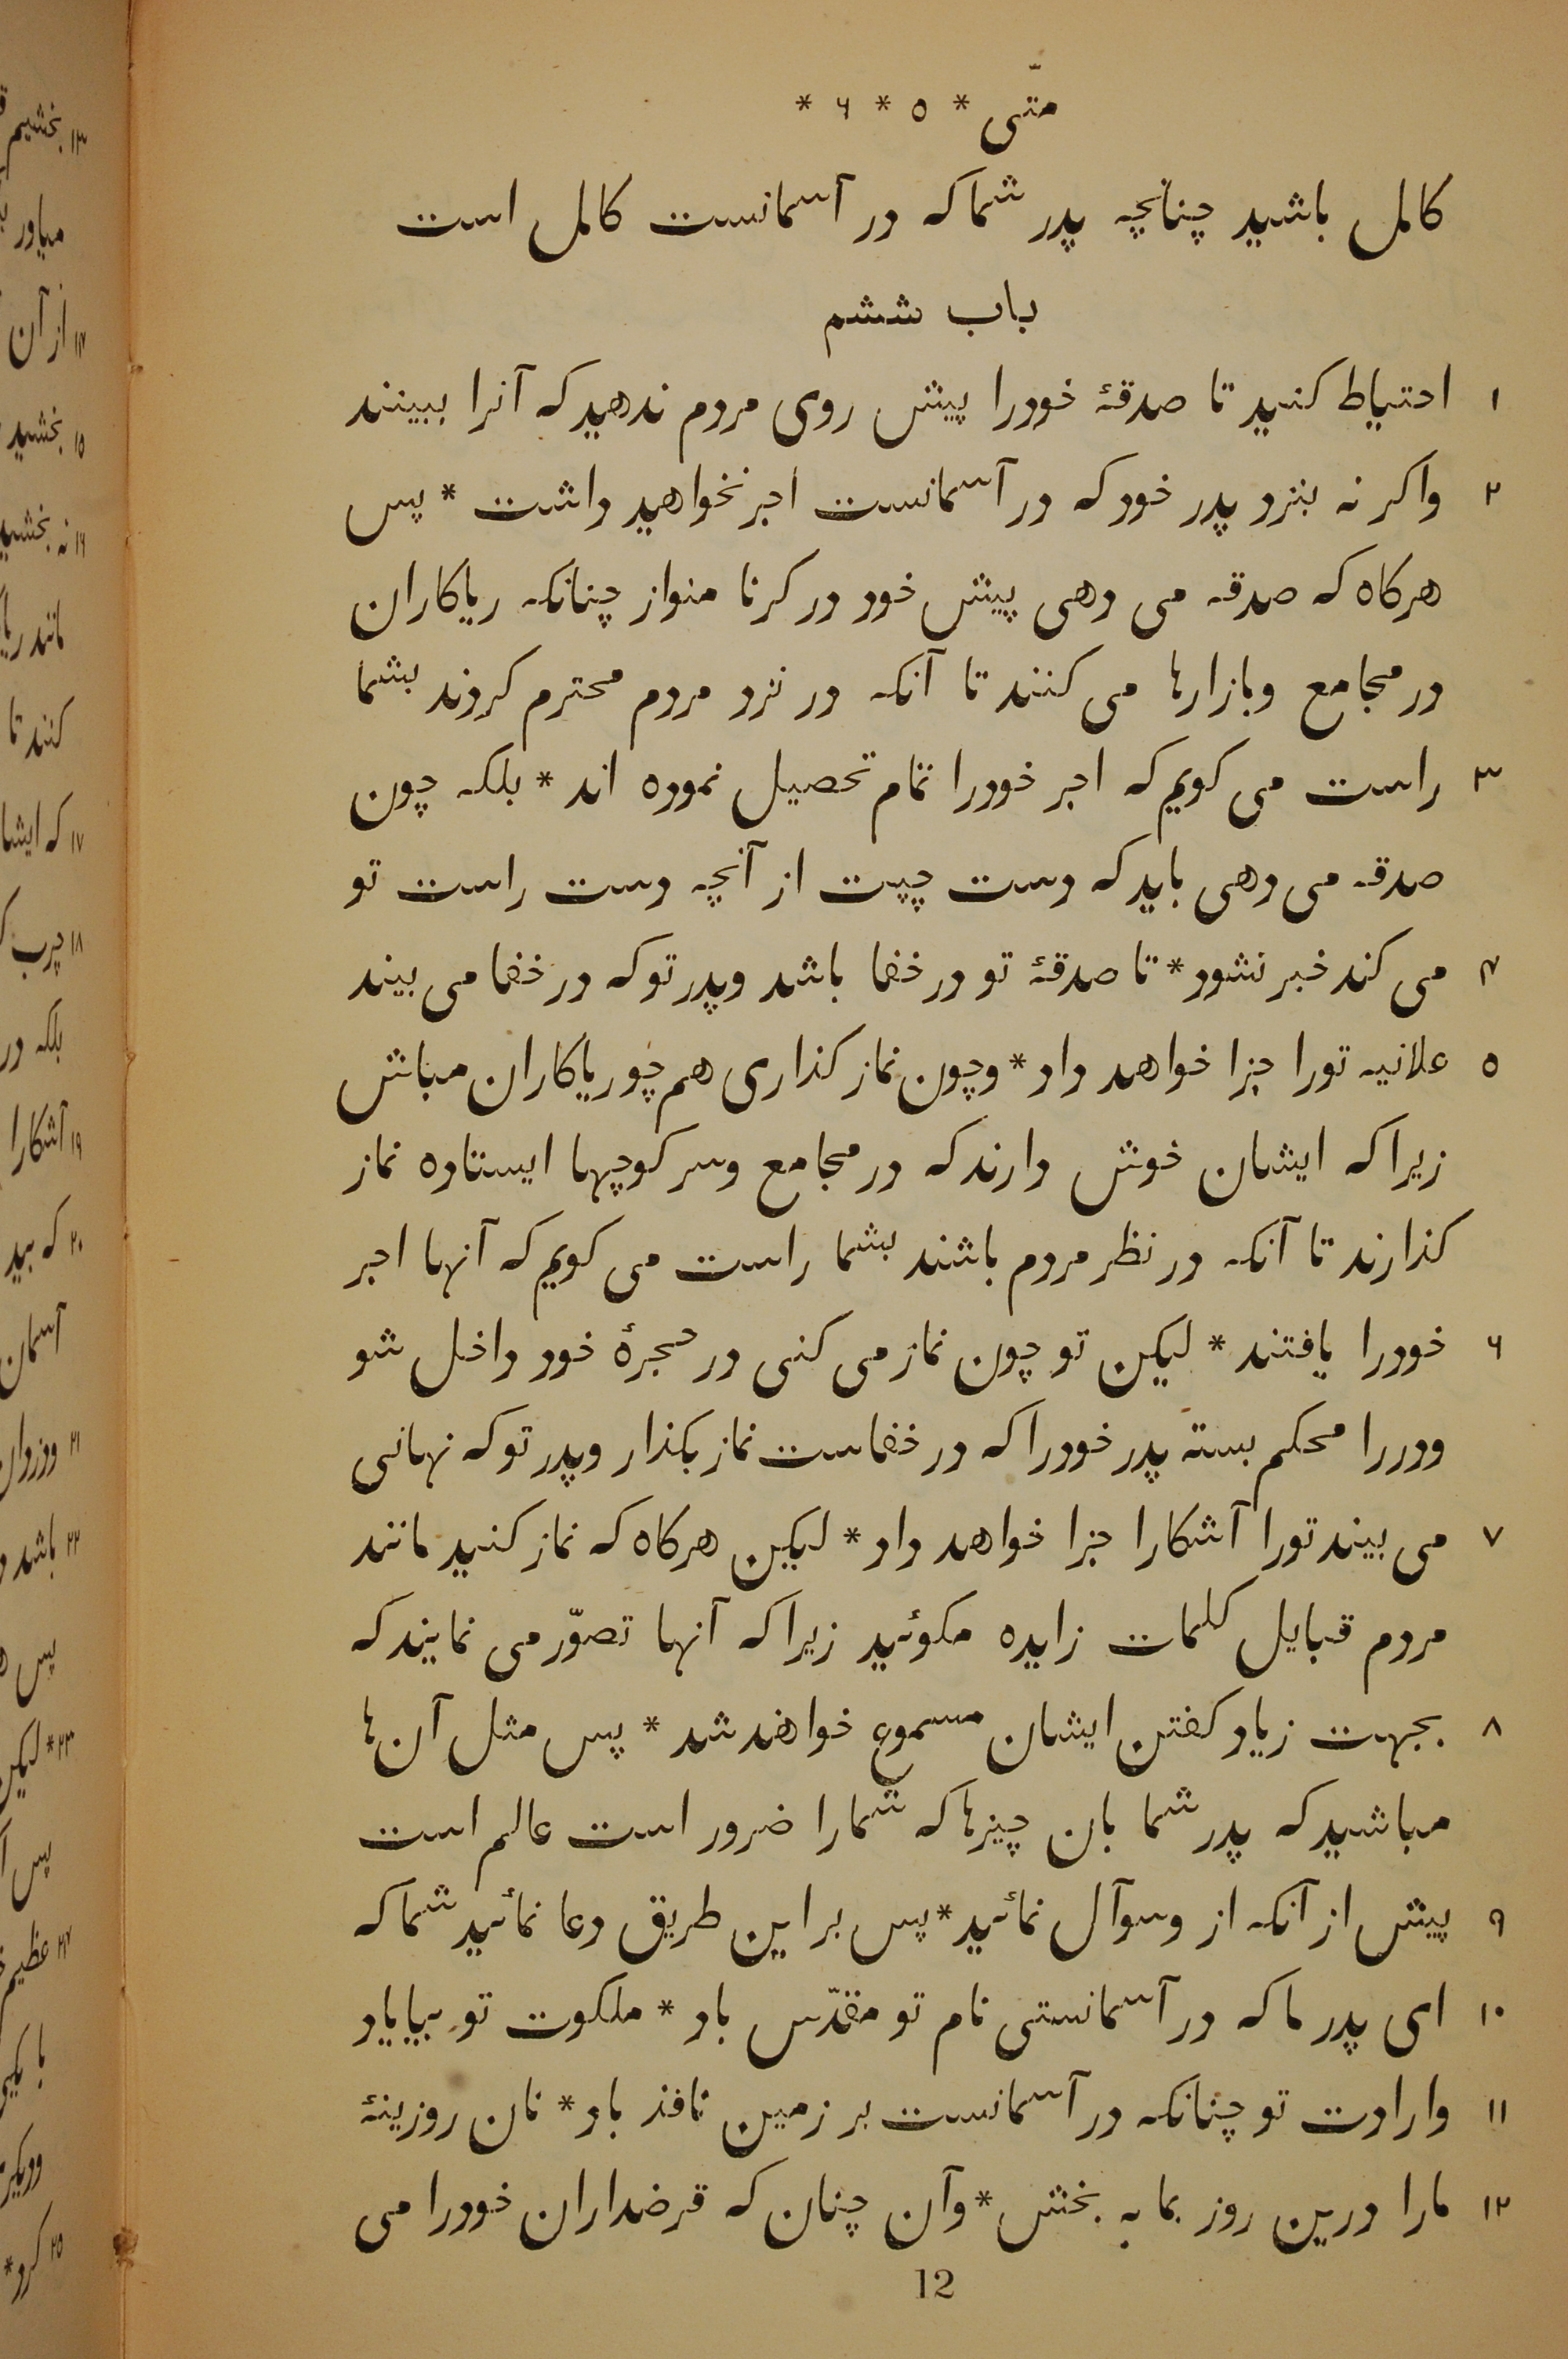 متّی * ٥ * ٦ *
کامل باشید چنانچه پدر شما که در آسمانست کامل است
باب ششم
١ احتیاط کنید تا صدقهٔ خودرا پیش روی مردم ندهید که آنرا ببینند
٢ واکر نه بنزد پدر خود که در آسمانست اجر نخواهید داشت * پس
هرکاه که صدقه می دهی پیش خود در کرنا منواز چنانکه ریاکاران
در مجامع وبازارها می کنند تا آنکه در نزد مردم محترم کردند بشما
٣ راست می کویم که اجر خودرا تمام تحصیل نموده اند * بلکه چون
صدقه می دهی باید که دست چپت از آنچه دست راست تو
٤ می کند خبر نشود * تا صدقهٔ تو در خفا باشد وپدر تو که در خفا می بیند
٥ علانیه تورا جزا خواهد داد * وچون نماز کذاری هم چو ریاکاران مباش
زیرا که ایشان خوش دارند که در مجامع وسر کوچها ایستاده نماز
کذارند تا آنکه در نظر مردم باشند بشما راست می کویم که آنها اجر
٦ خودرا یافتند * لیکن تو چون نماز می کنی در حجرهٔ خود داخل شو
ودررا محکم بسته پدر خودرا که در خفاست نماز بکذار وپدر تو که نهانی
٧ می بیند تورا آشکارا جزا خواهد داد * لیکن هرکاه که نماز کنید مانند
مردم قبایل کلمات زایده مکوئید زیرا که آنها تصوّر می نمایند که
٨ بجهت زیاد کفتن ایشان مسموع خواهند شد * پس مثل آن ها
مباشید که پدر شما بان چیزها که شمارا ضرور است عالم است
٩ پیش از آنکه از وسوآل نمائید * پس بر این طریق دعا نمائید شما که
١٠ ای پدر ما که در آسمانستی نام تو مقدّس باد * ملکوت تو بیاید
١١ وارادت تو چنانکه در آسمانست بر زمین نافذ باد * نان روزینهٔ
١٢ مارا درین روز بما به بخش * وآن چنان که قرضداران خودرا می
12